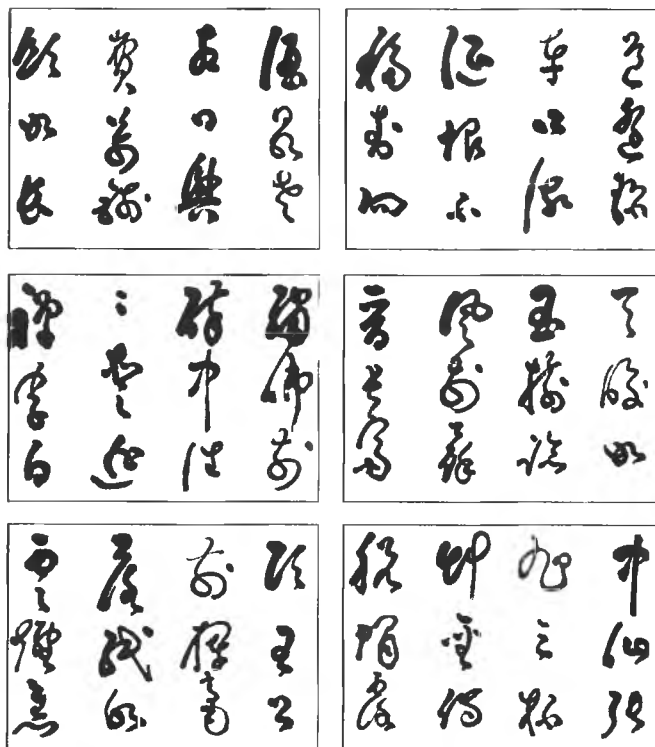 道逢麴
車口流
涎恨不
移封向
酒泉左
相日興
費萬錢
飲如長
天皎如
玉樹臨
風前蘇
晉長齋
繡佛前
醉中往
々愛逃
禪李白
中仙張
旭三杯
艸聖傳
脫帽露
頂王公
前揮毫
落紙如
雲煙焦